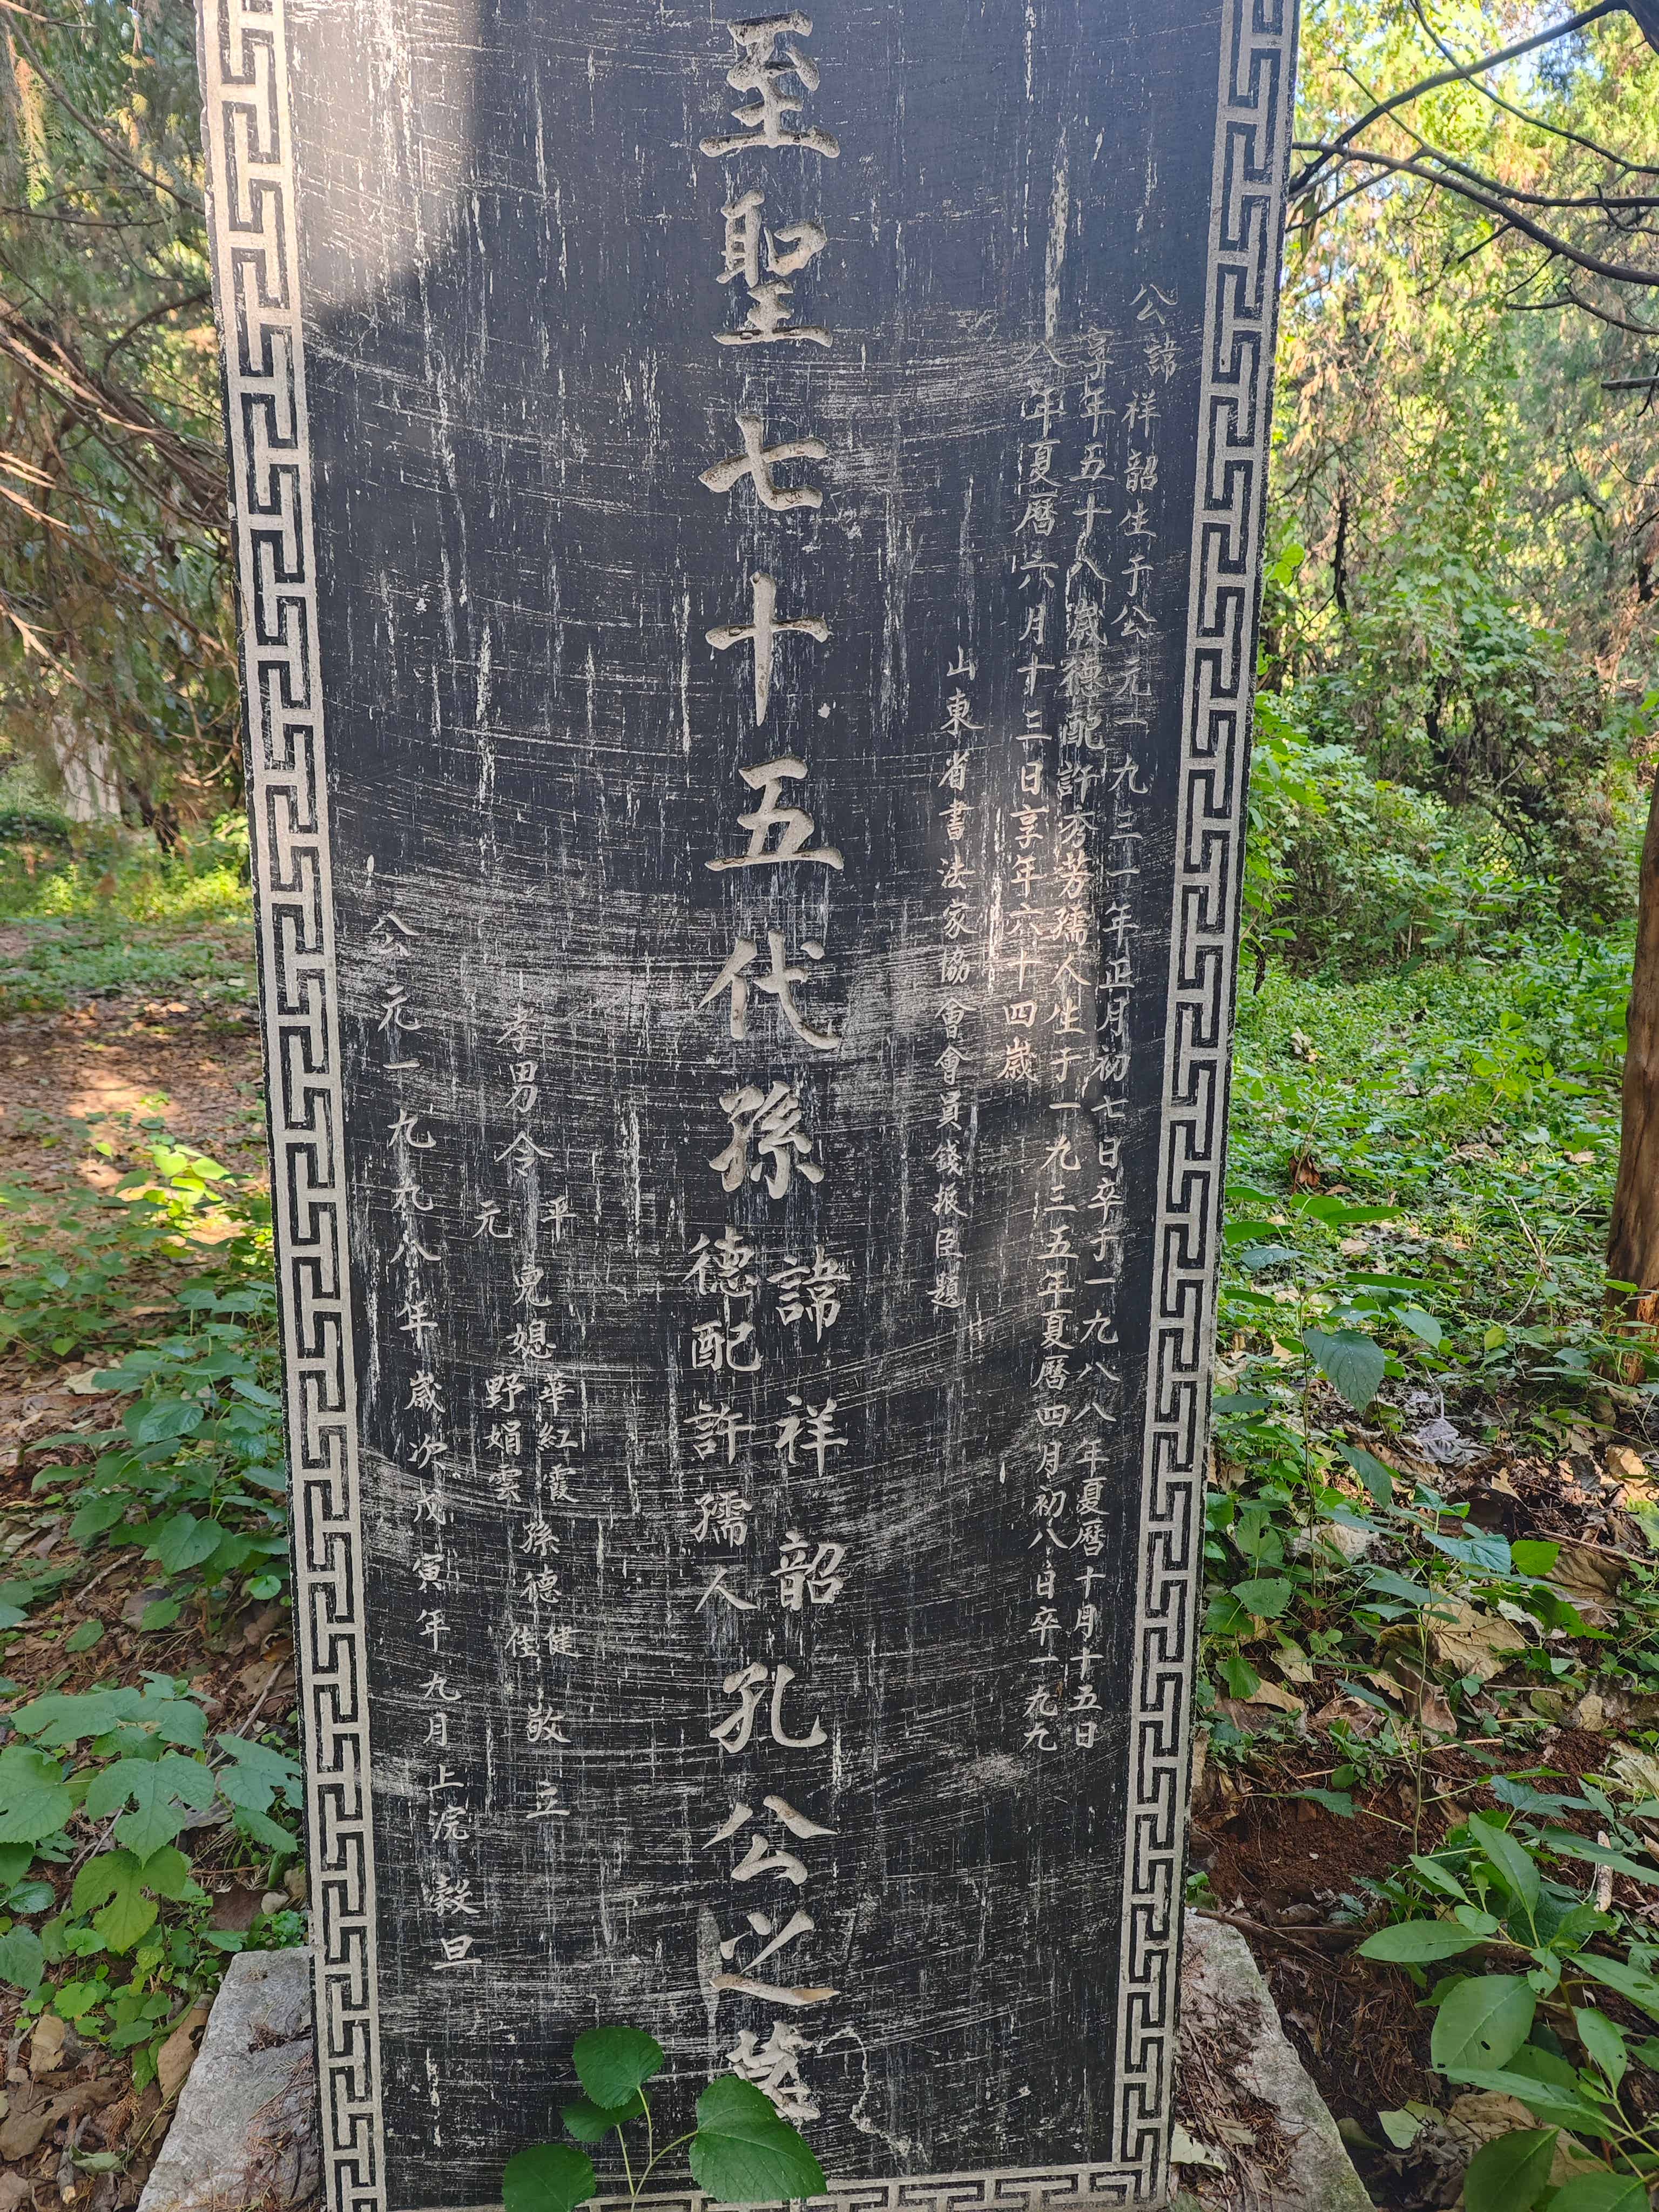 公諱祥韶生于公元一九三一年正月初七日卒于一九八八年夏曆十月十五日
享年五十八歲德配許芳孺人生于一九三五年夏曆四月初八日卒一九九
八年夏曆六月十三日享年六十四歲
山東省書法家協會會員錢振臣題
至聖七十五代孫
諱祥韶
德配許孺人
孔公之墓
孝男令
平
元
兒媳
華紅霞
野娟雲
孫德
健
佳
敬立
公元一九九八年歲次戊寅年九月上浣穀旦